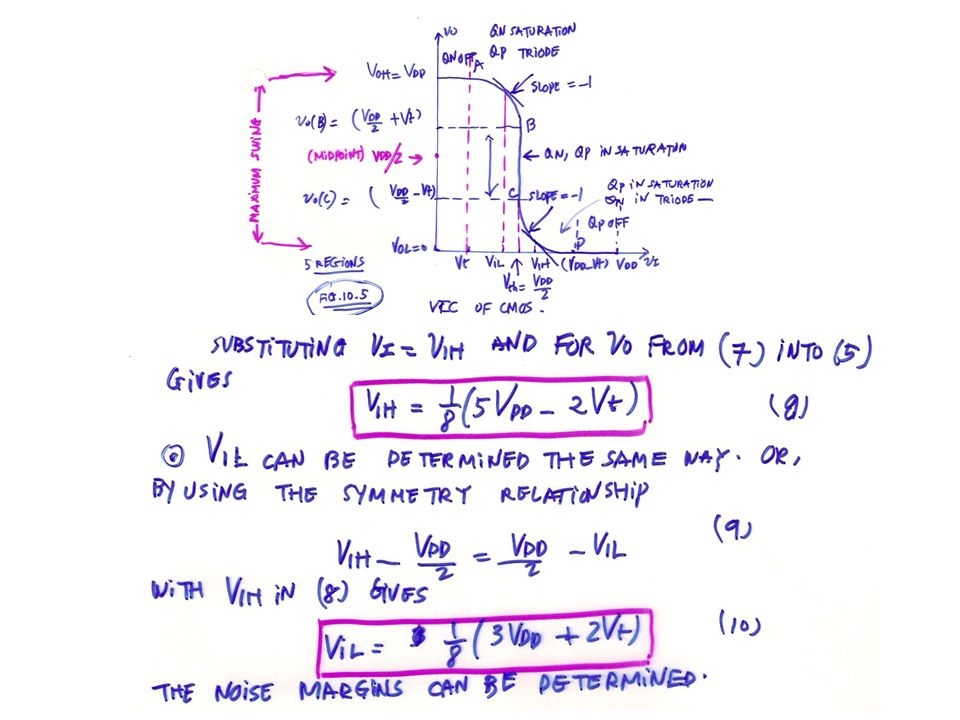 VO QN SATURATION
QN OFF A QP TRIODE
VOH = VDD
SLOPE = -1
vo(B) = (VDD/2 + Vt)
B
MAXIMUM SWING
(MIDPOINT) VDD/2 →
← QN, QP IN SATURATION
vo(C) = (VDD/2 - Vt)
C
SLOPE = -1
QP IN SATURATION
QN IN TRIODE
QP OFF
VOL = 0
D
5 REGIONS
Vt ViL ↑ ViH (VDD-Vt) VDD vI
Vth = VDD/2
FIG.10.5
VTC OF CMOS.
SUBSTITUTING VI = VIH AND FOR VO FROM (7) INTO (5)
GIVES
VIH = 1/8 (5VDD - 2Vt) (8)
⊙ VIL CAN BE DETERMINED THE SAME WAY. OR,
BY USING THE SYMMETRY RELATIONSHIP
VIH - VDD/2 = VDD/2 - VIL (9)
WITH VIH IN (8) GIVES
ViL = 1/8 (3VDD + 2Vt) (10)
THE NOISE MARGINS CAN BE DETERMINED.